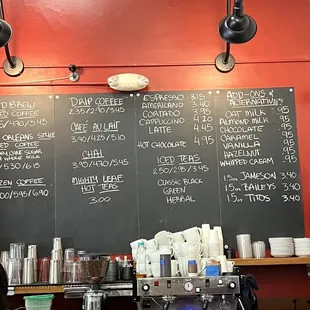 D BREW
ED COFFEE
/4.70/5.45
ORLEANS STYLE
5.30/6.15
ZEN COFFEE
5.45/6.40
DRIP COFFEE
2.35/2.90/3.45
CAFÉ AU LAIT
3.40/4.25/5.10
CHAI
3.95/4.70/5.45
MIGHTY LEAF
HOT TEAS
3.00
ESPRESSO 3.15
AMERICANO 3.40
CORTADO 3.95
CAPPUCCINO 4.20
LATTE 4.45
HOT CHOCOLATE 4.95
ICED TEAS
2.50/2.95/3.45
CLASSIC BLACK
GREEN
HERBAL
ADD-ONS &
ALTERNATIVES
OAT MILK .95
ALMOND MILK .95
CHOCOLATE .95
CARAMEL .95
VANILLA .95
HAZELNUT .95
WHIPPED CREAM .95
1.5oz JAMESON 3.40
1.5oz BAILEYS 3.40
1.5oz TITOS 3.40